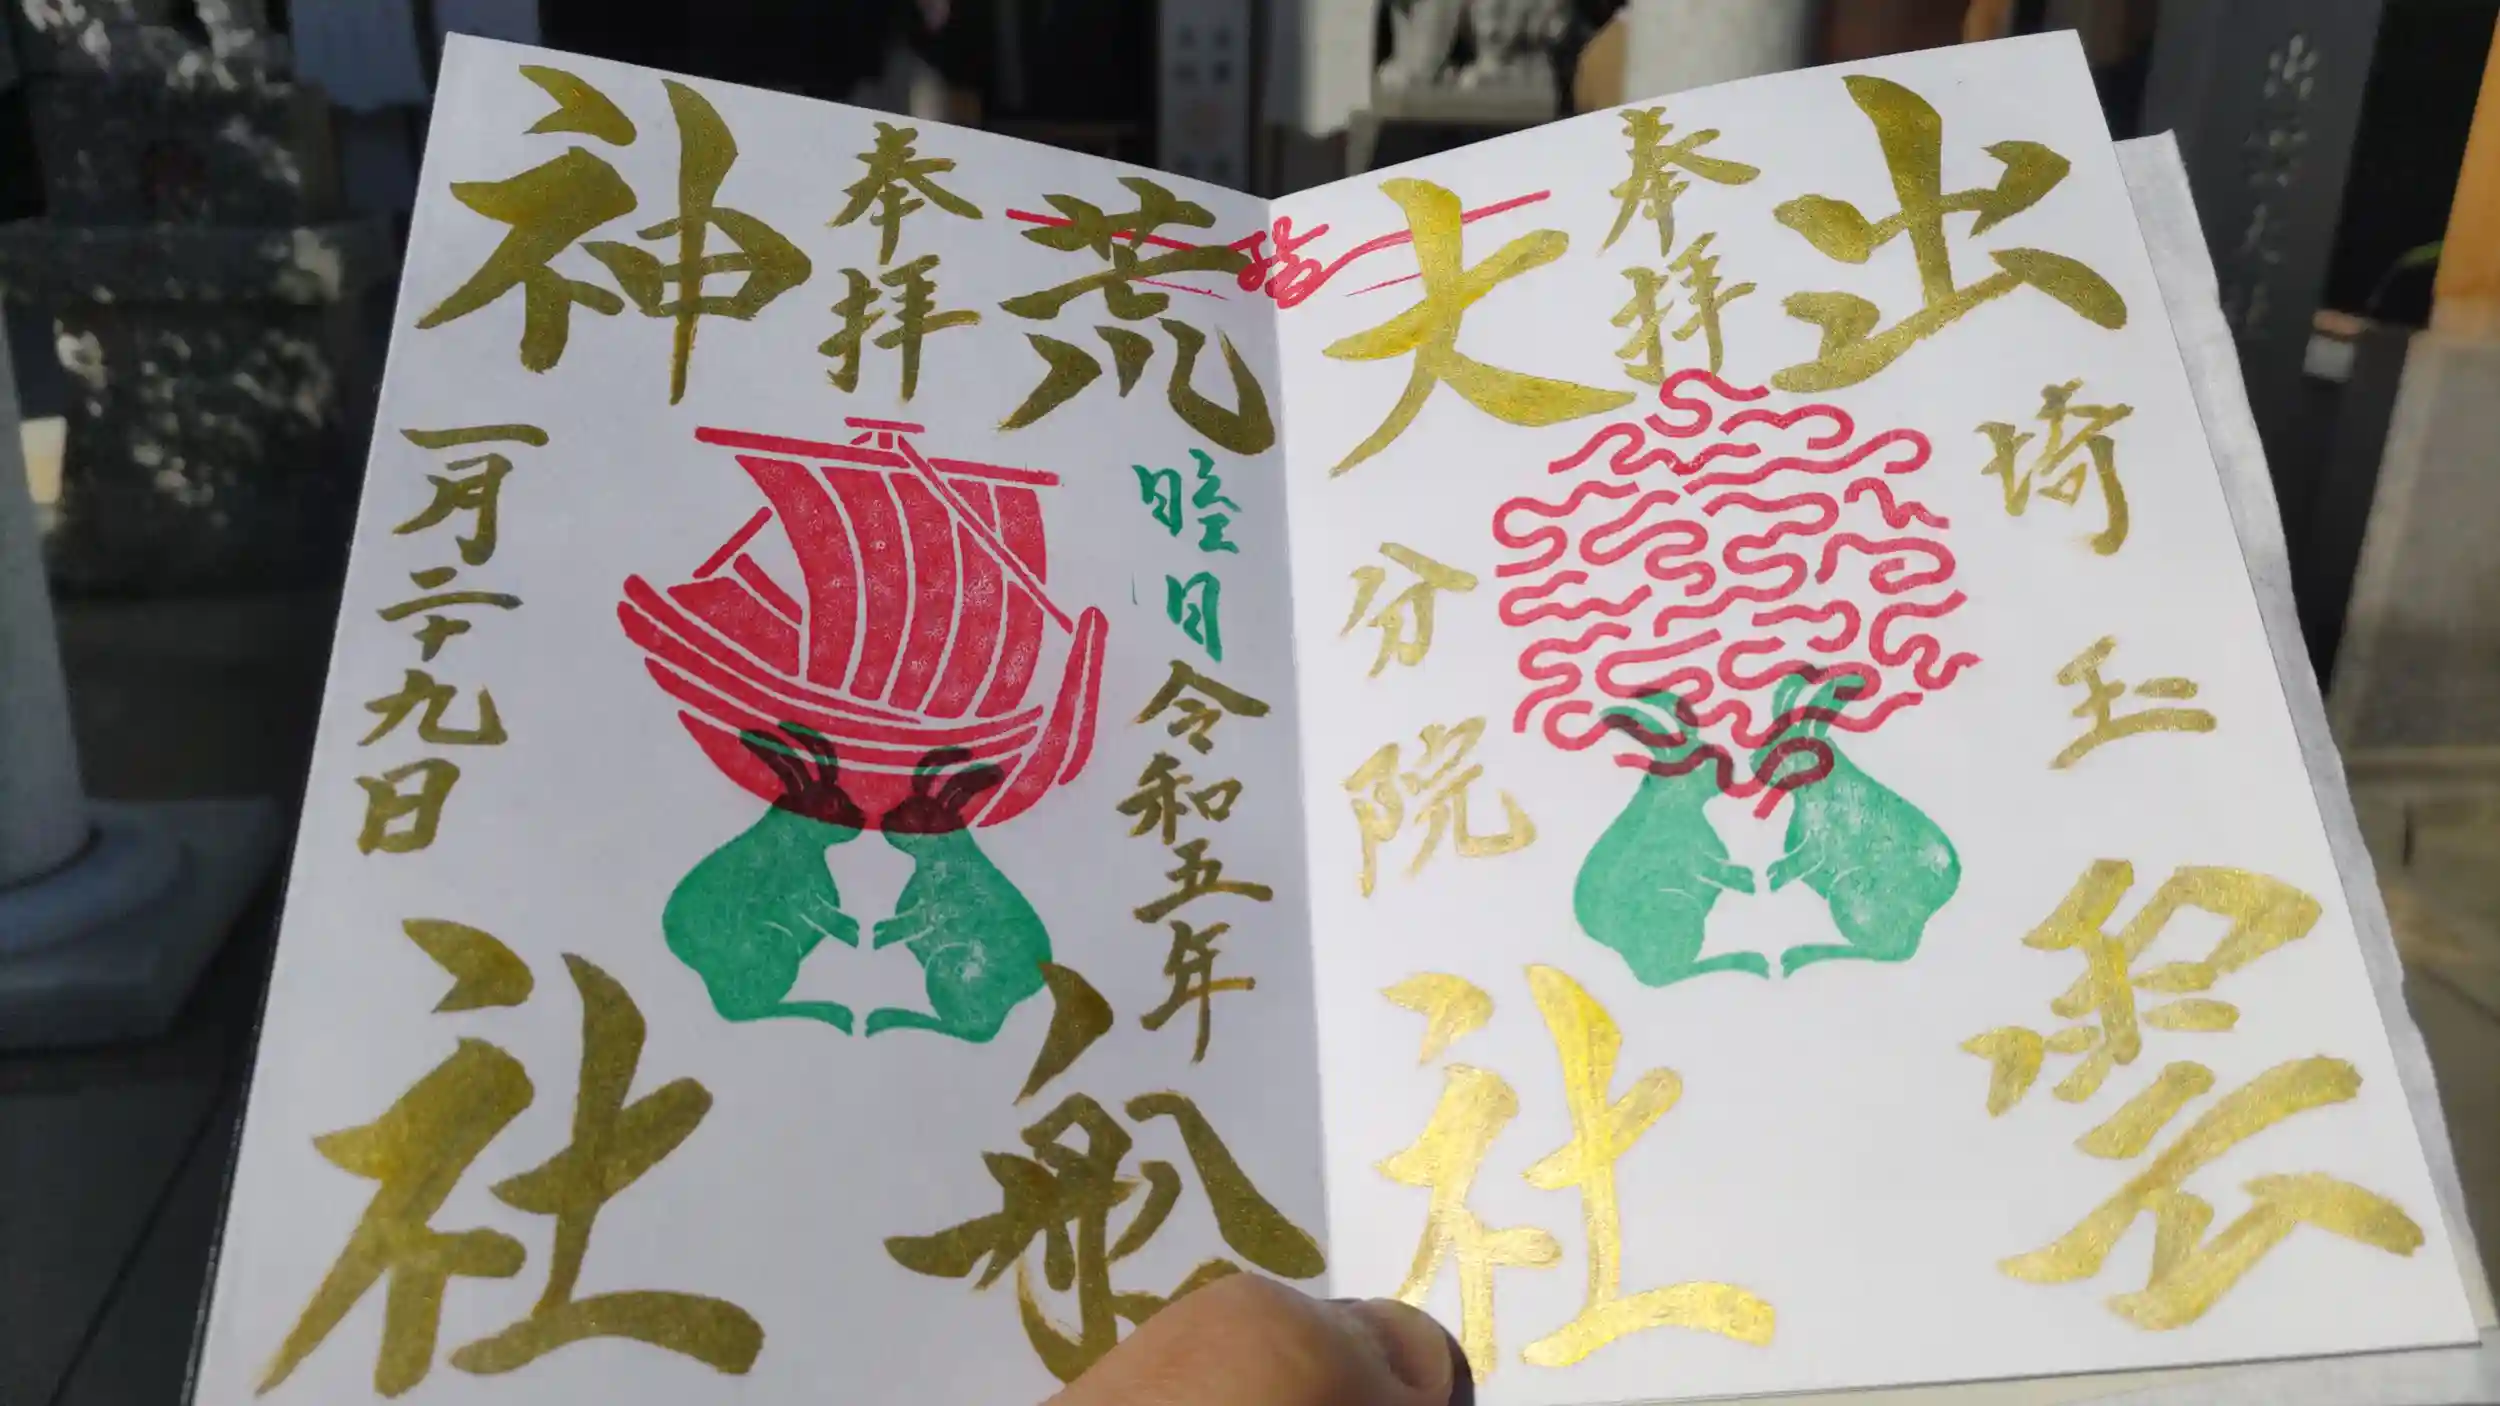 出雲
埼玉
奉拝
大社
分院
荒船
睦月
令和五年
奉拝
神社
一月二十九日